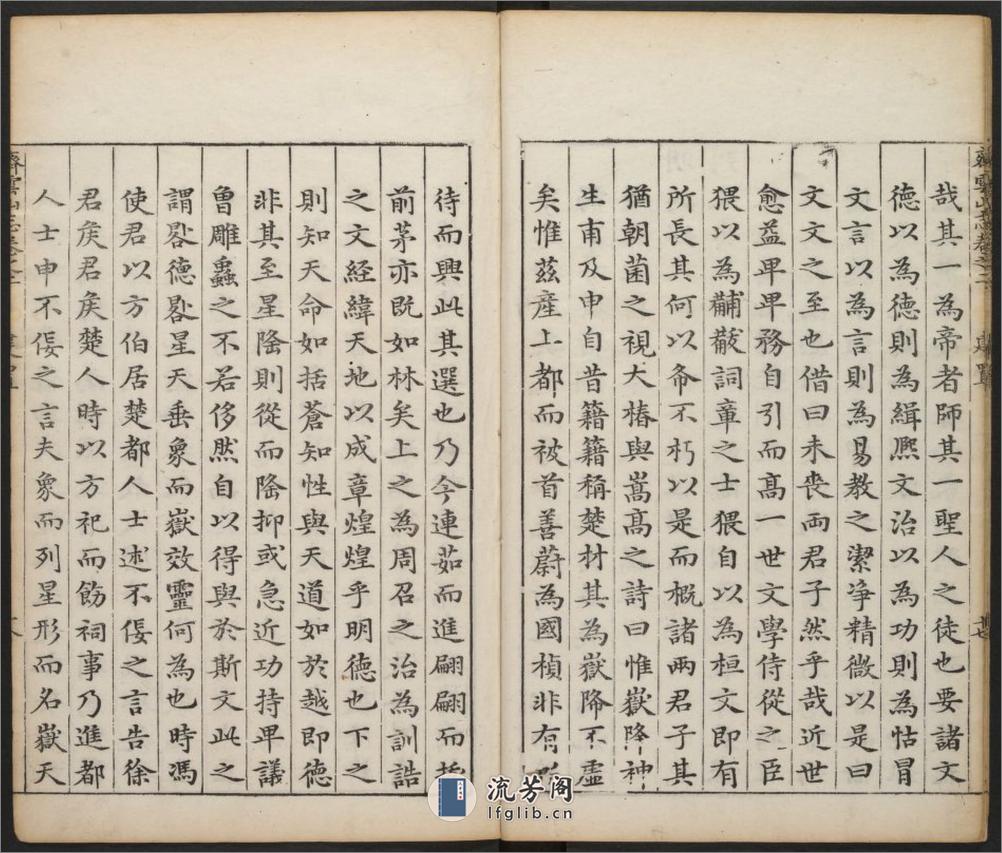 哉其一為帝者師其一聖人之徒也要諸文
德以為德則為緝熈文治以為功則為怙冒
文言以為言則為易教之潔淨精微以是曰
文文之至也借曰未喪两君子然乎哉近世
愈益卑卑務自引而髙一世文學侍從之臣
猥以為黼黻詞章之士猥自以為桓文即有
所長其何以命不朽以是而概諸兩君子其
猶朝菌之視大椿與嵩髙之詩曰惟嶽降神
生甫及申自昔籍籍稱楚材其為嶽降不虛
矣惟茲産上都而被首善蔚為國楨非有所
待而興此其選也乃今連茹而進翩翩而
前茅亦旣如林矣上之為周召之治為訓誥
之文經緯天地以成章煌煌乎明德也下之
則知天命如括蒼知性與天道如於越即德
非其至星降則從而降抑或急近功持卑議
曾雕蟲之不若侈然自以得與於斯文此之
謂畧德畧星天垂象而嶽效靈何為也時馮
使君以方伯居楚都人士述不佞之言告徐
君矦君矦楚人時以方祀而飭祠事乃進都
人士申不佞之言夫象而列星形而名嶽天
齊雲山志卷之
流芳阁
lfglib.cn